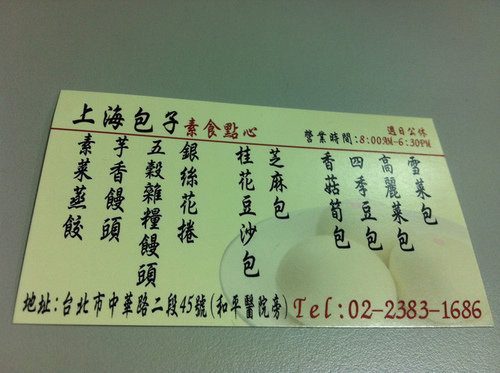 上海包子 素食點心
週日公休
營業時間:8:00AM-6:30PM
雪菜包
高麗菜包
四季豆包
香菇筍包
芝麻包
桂花豆沙包
銀絲花捲
五穀雜糧饅頭
芋香饅頭
素菜蒸餃
地址:台北市中華路二段45號(和平醫院旁) Tel:02-2383-1686